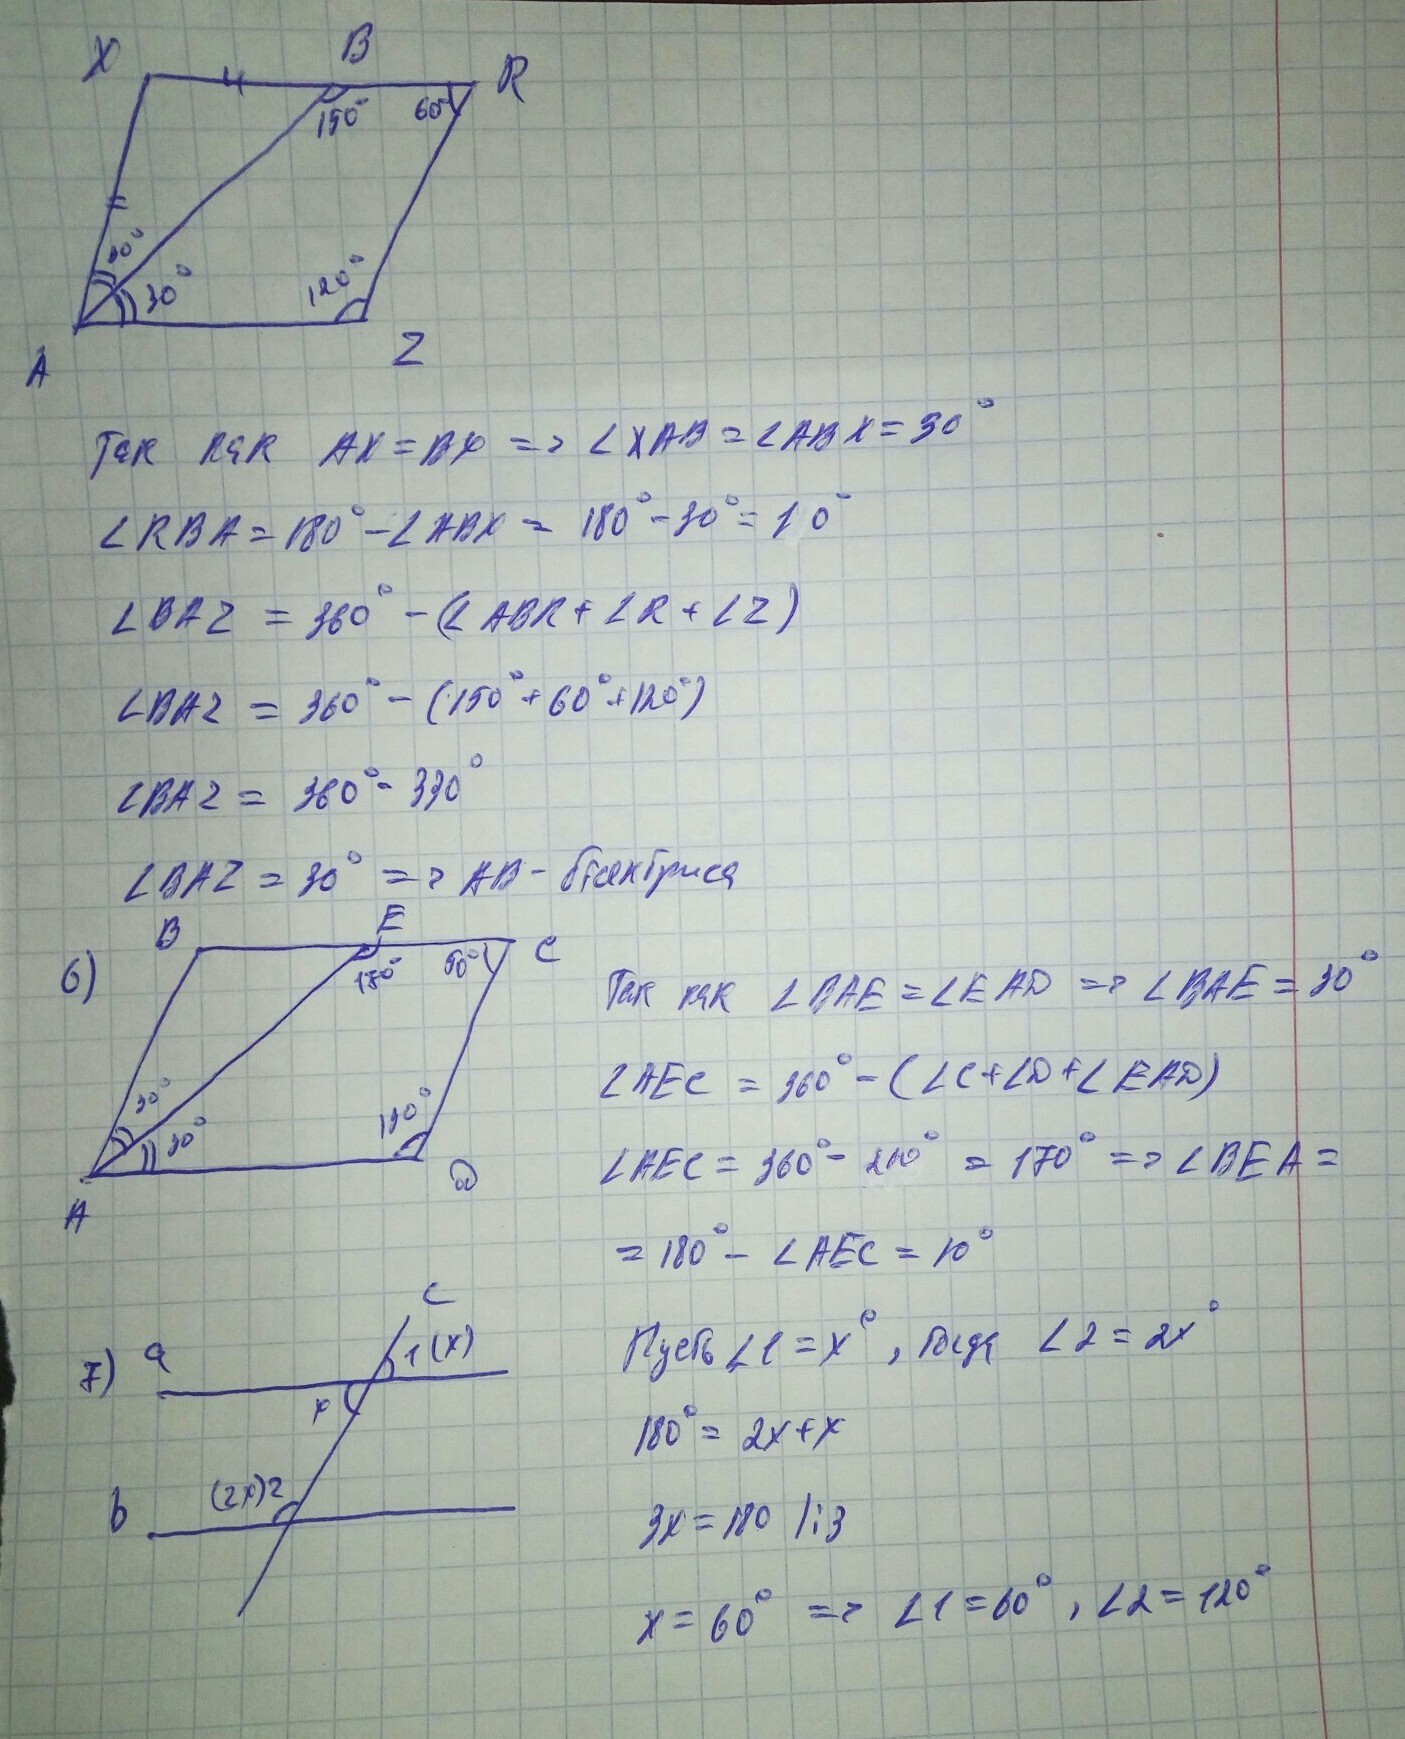 X B R
150° 60°
30° 30° 120°
A Z
Так как AX = BX => ∠XAB = ∠ABX = 30°
∠RBA = 180° - ∠ABX = 180° - 30° = 1 0°
∠BAZ = 360° - (∠ABR + ∠R + ∠Z)
∠BAZ = 360° - (150° + 60° + 120°)
∠BAZ = 360° - 330°
∠BAZ = 30° => AB - биссектриса
6) B E C
30° 30°
A D
Так как ∠BAE = ∠EAD => ∠BAE = 30°
∠AEC = 360° - (∠C + ∠D + ∠EAD)
∠AEC = 360° - = 170° => ∠BEA =
= 180° - ∠AEC = 10°
7) a c
1(x)
x
b (2x)2
Пусть ∠1 = x°, тогда ∠2 = 2x°
180° = 2x + x
3x = 180 |:3
x = 60° => ∠1 = 60°, ∠2 = 120°